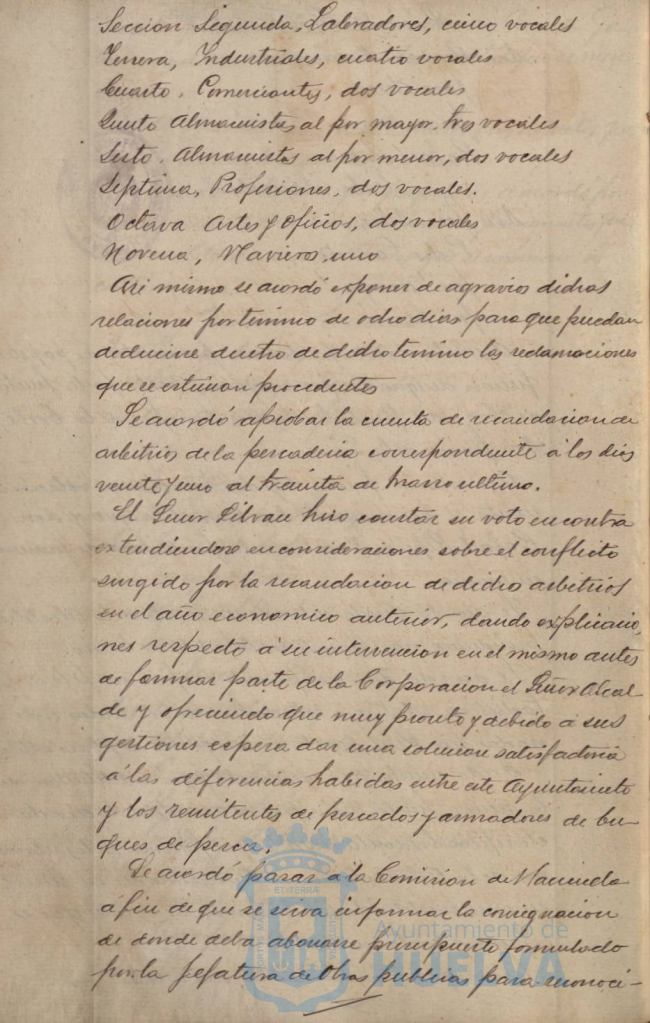 Seccion Segunda, Labradores, cinco vocales
Tercera, Industriales, cuatro vocales
Cuarto, Comerciantes, dos vocales
Quinto Almacenistas al por mayor, tres vocales
Sesto, Almacenistas al por menor, dos vocales
Septima, Profesiones, dos vocales.
Octava Artes y Oficios, dos vocales
Novena, Navieros, uno
Asi mismo se acordó exponer de agravios dichas
relaciones por termino de ocho dias para que puedan
deducirse dentro de dicho termino las reclamaciones
que se estimen procedentes
Se acordó aprobar la cuenta de recaudacion de
arbitrios de la pescaderia correspondiente á los dias
veinte y uno al treinta de Marzo ultimo.
El Señor Silvan hizo constar su voto en contra
extendiendose en consideraciones sobre el conflicto
surgido por la recaudacion de dicho arbitrios
en el año economico anterior, dando explicacio,
nes respecto á su intervencion en el mismo antes
de formar parte de la Corporacion el Señor Alcal
de y ofreciendo que muy pronto y debido á sus
gestiones espera dar una solucion satisfactoria
á las diferencias habidas entre este Ayuntamiento
y los remitentes de pescados y armadores de bu-
ques de pesca.
Se acordó pasar á la Comision de Hacienda
á fin de que se sirva informar la consignacion
de donde deba abonarse presupuesto formulado
por la Jefatura de Obras publicas para reconoci-
Ayuntamiento de
HUELVA